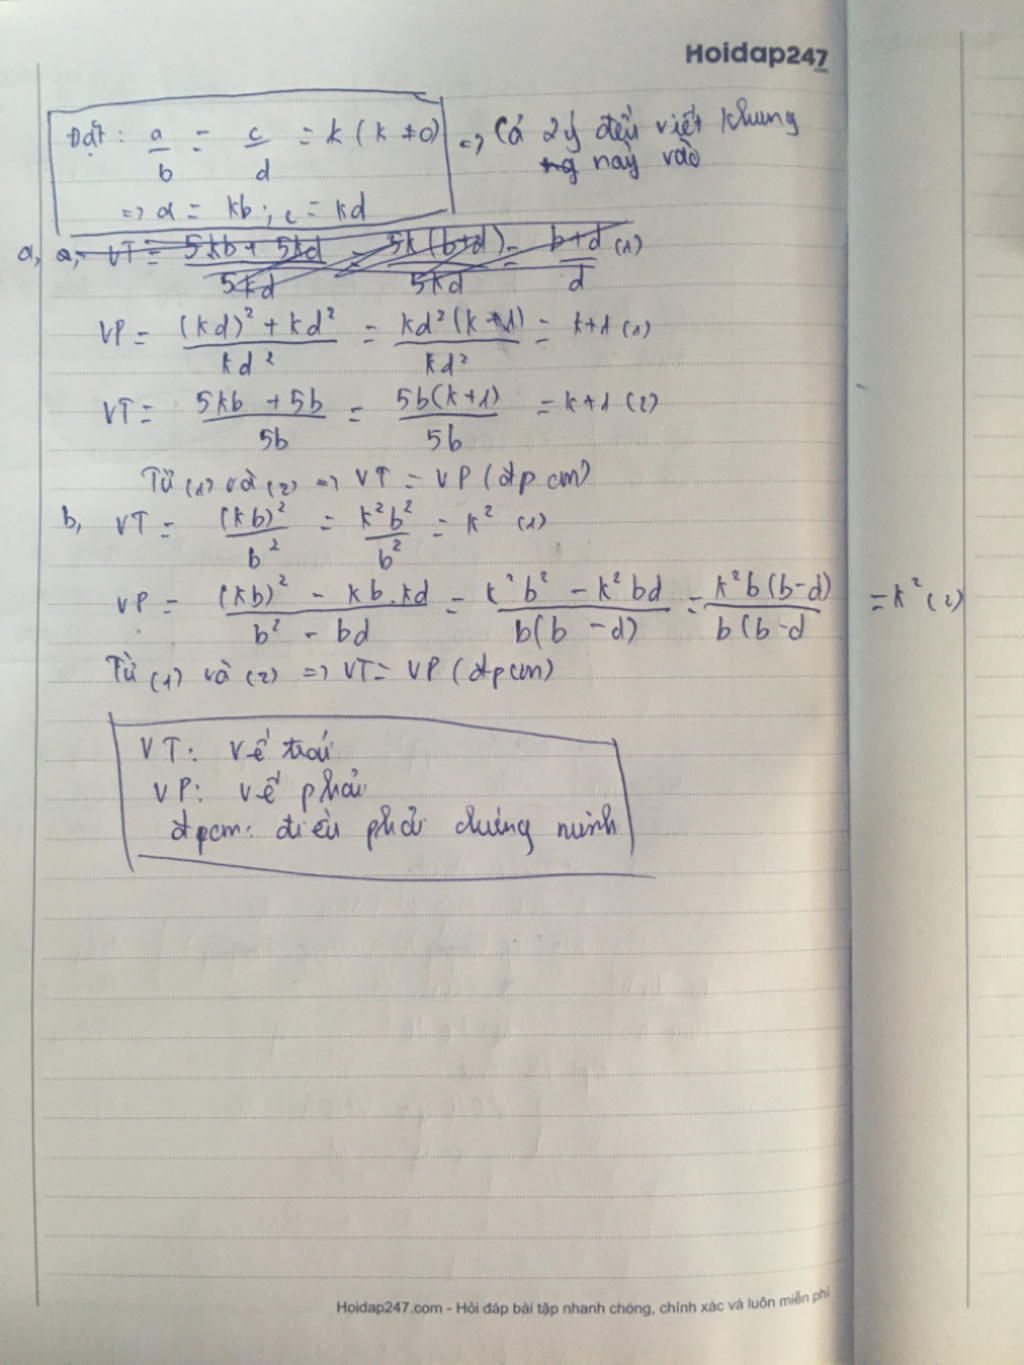 Hoidap247
Đặt: a/b = c/d = k (k ≠ 0) => Cả 2 ý đều viết khung
này vào
=> a = kb; c = kd
a, a, VT = (5kb + 5kd)/5kd = 5k(b+d)/5kd = (b+d)/d (1)
VP = ((kd)² + kd²)/kd² = kd²(k+1)/kd² = k+1 (1)
VT = (5kb + 5b)/5b = 5b(k+1)/5b = k+1 (2)
Từ (1) và (2) => VT = VP (đpcm)
b, VT = (kb)²/b² = k²b²/b² = k² (1)
VP = ((kb)² - kb.kd)/(b² - bd) = (k²b² - k²bd)/b(b - d) = k²b(b-d)/b(b-d = k² (2)
Từ (1) và (2) => VT = VP (đpcm)
VT: Vế trái
VP: Vế phải
đpcm: điều phải chứng minh
Hoidap247.com - Hỏi đáp bài tập nhanh chóng, chính xác và luôn miễn phí